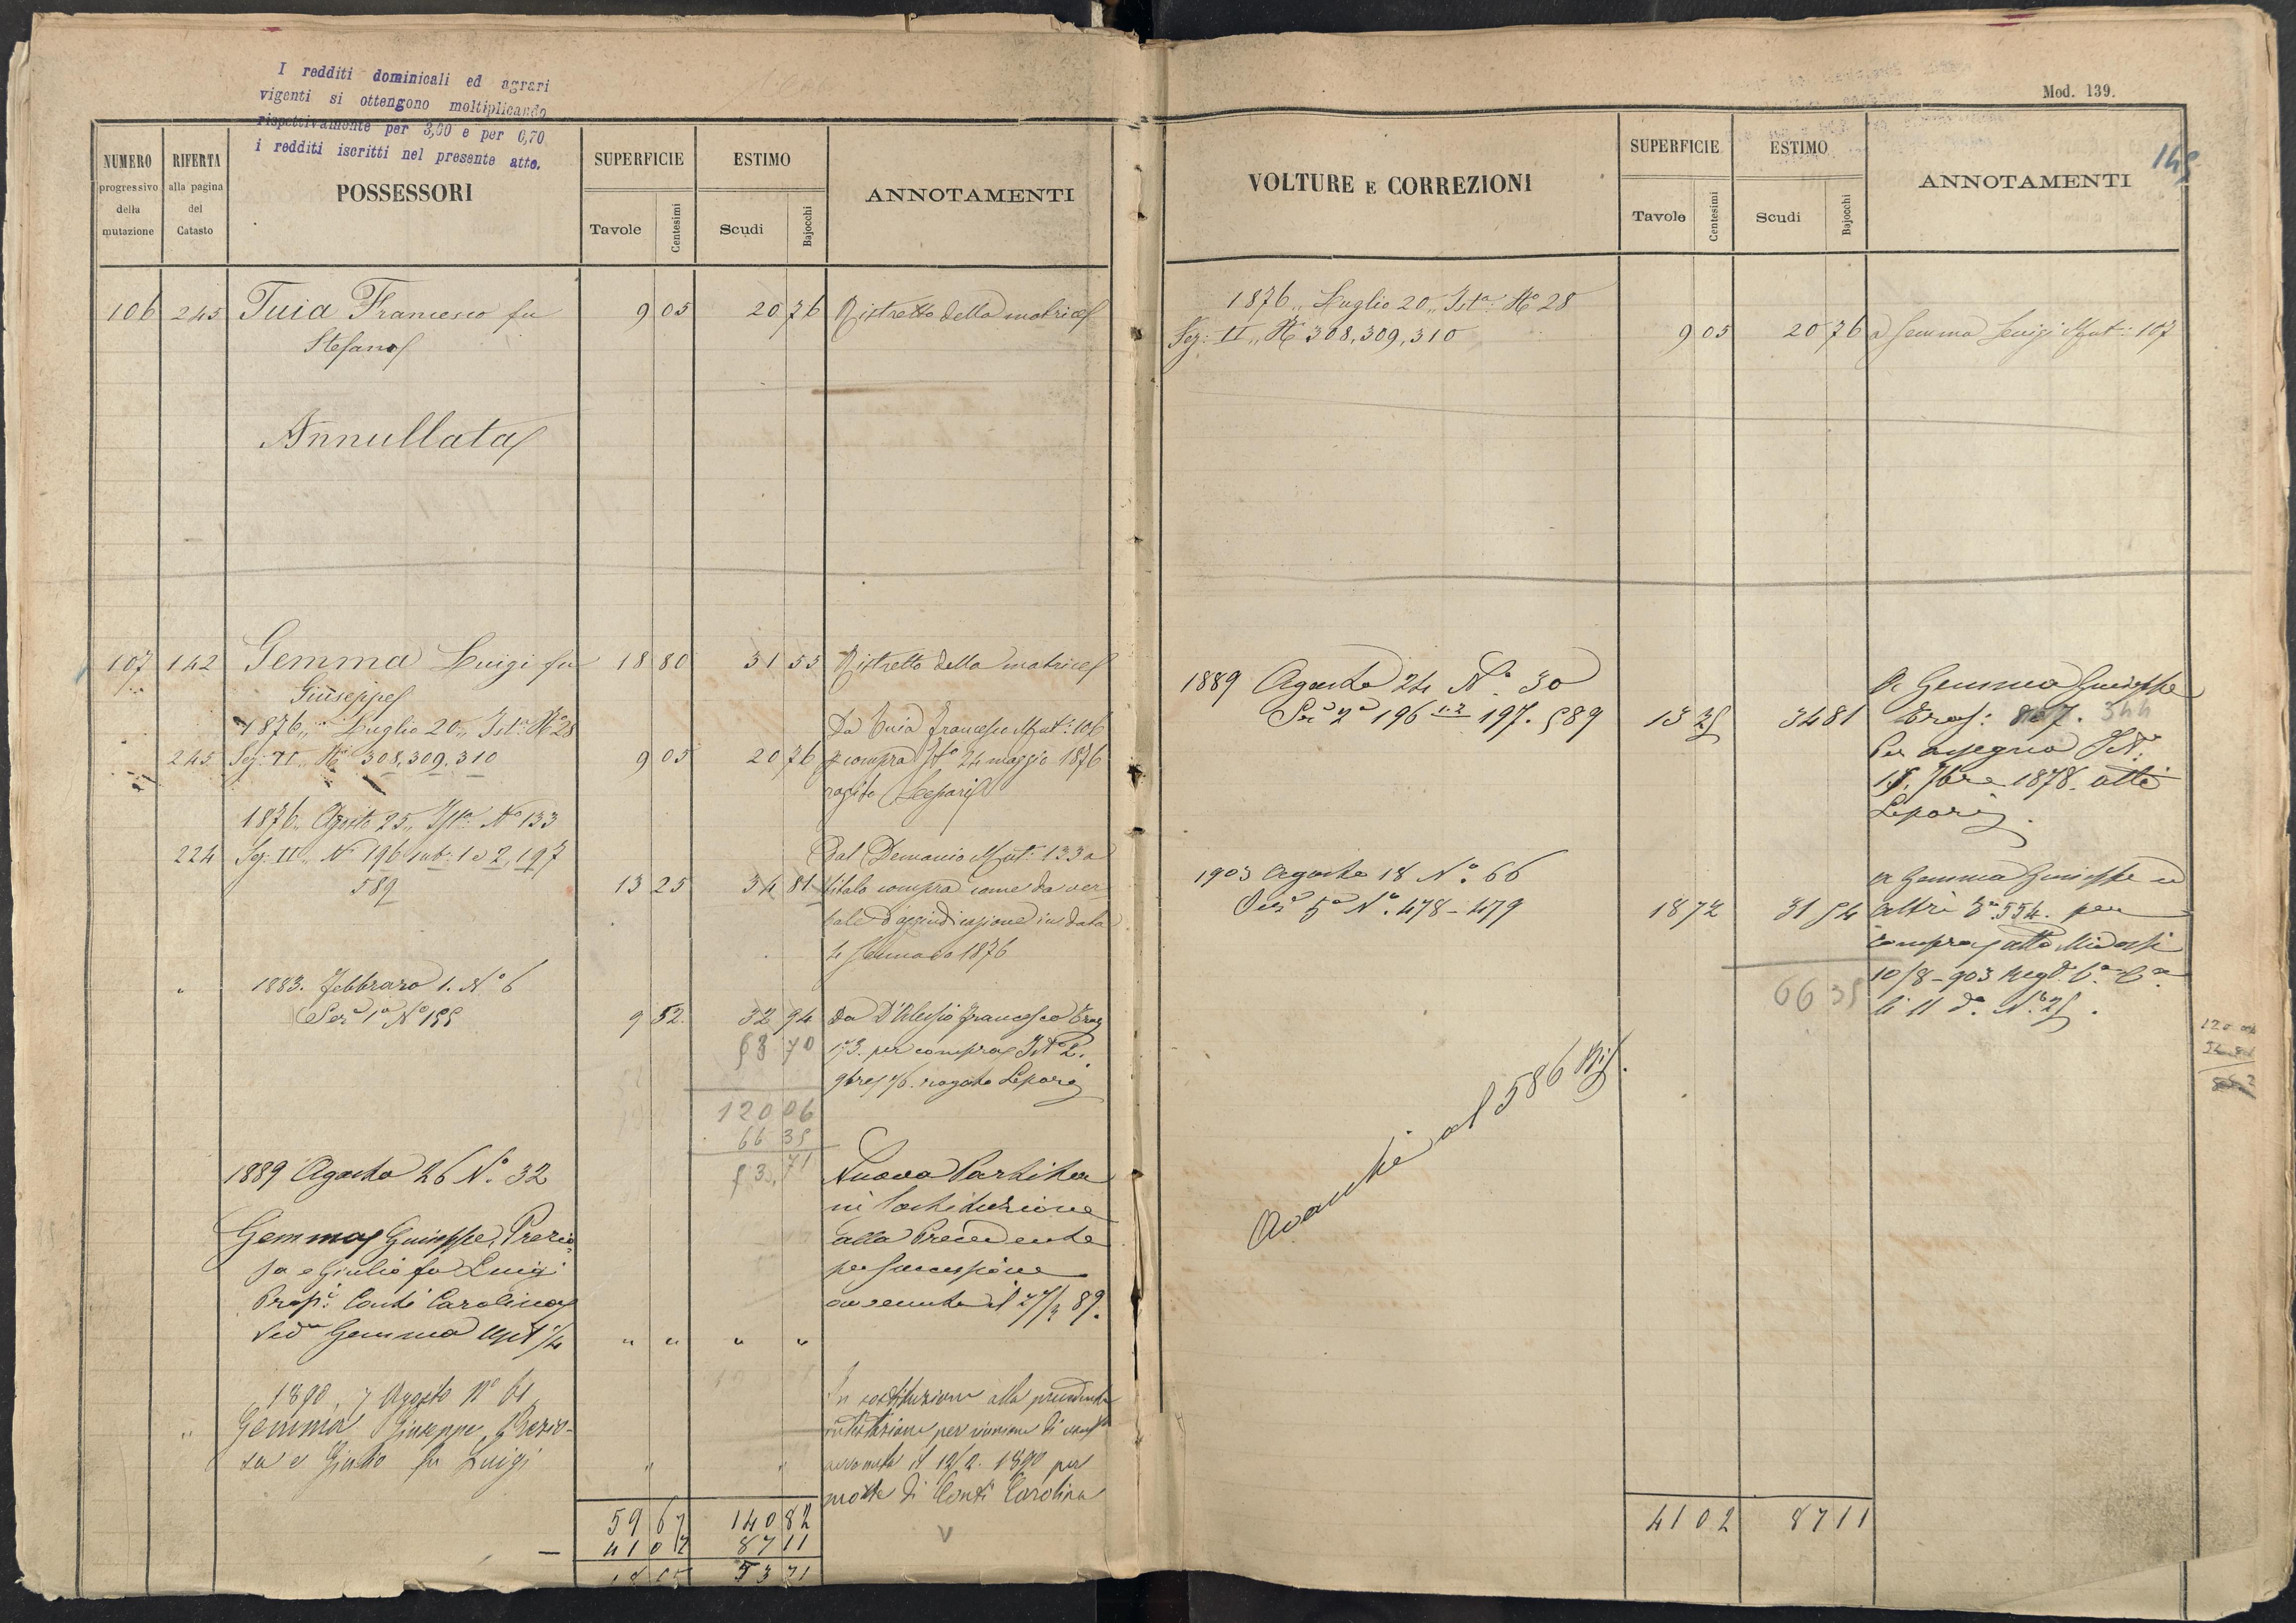 I redditi dominicali ed agrari
vigenti si ottengono moltiplicando
rispettivamente per 3,60 e per 6,70
i redditi iscritti nel presente atto.
NUMERO
progressivo
della
mutazione
RIFERTA
alla pagina
del
Catasto
POSSESSORI
SUPERFICIE
Tavole Centesimi
ESTIMO
Scudi Bajocchi
ANNOTAMENTI
106 245 Tuia Francesco fu 9 05 20 76 Ristretto della matrice
Stefano
Annullata
107 142 Gemma Luigi fu 18 80 31 55 Ristretto della matrice
Giuseppe
1876,, Luglio 20,, Ist.a N.o 28 Da Tuia Francesco Mut: 106
245 Sez: II,, N.i 308,309,310 9 05 20 76 compra 24 maggio 1876
rogito Lepori
1876,, Agosto 25,, Ist.a N.o 133
224 Sez: II,, N.i 196 sub: 1 e 2, 197 Dal Demanio Mut: 133 a
589 13 25 34 81 titolo compra come da ver
bale d'aggiudicazione in data
4 Gennaio 1876
" 1883. Febbraro 1. N.o 6
Sez.e 1a N.o 155 9 52 32 94 Da D'Alessio Francesco
173. per compra
9bre 76. rogato Lepori
120 06
66 35
53,71
1889 Agosto 26 N.o 32 Nuova Partita
in sostituzione
Gemma Giuseppe, Prezio- alla Precedente
sa e Giulio fu Luigi per successione
Prop.i Conti Carolina avvenuta il 27/3 89.
Ved.a Gemma Usuf 1/4 " " " "
1890, 7 Agosto N.o 61 In sostituzione alla precedente
" Gemma Giuseppe, Prezio- intestazione per riunione di usuf.
sa e Giulio fu Luigi " " avvenuta il 12/2. 1890 per
morte di Conti Carolina
59 67 140 82
— 41 02 87 11
53 71
Mod. 139.
145
VOLTURE E CORREZIONI
SUPERFICIE
Tavole Centesimi
ESTIMO
Scudi Bajocchi
ANNOTAMENTI
1876,, Luglio 20,, Ist.a N.o 28
Sez: II,, N.i 308,309,310 9 05 20 76 a Gemma Luigi Mut: 107
1889 Agosto 24 N.o 30 A Gemma Giuseppe
Sez.e 2a 196 1-2 197. 589 13 25 34 81 344
Per assegno
15. 7bre 1878. atti
Lepori.
1903 Agosto 18 N.o 66 A Gemma Giuseppe ed
Sez.e 5a N.o 478-479 18 72 31 54 altri 554. per
compra atto
66 35 10/8-903 Reg.
li 11 d.o N.o 25.
120 06
Avanti al 586 Bis.
41 02 87 11